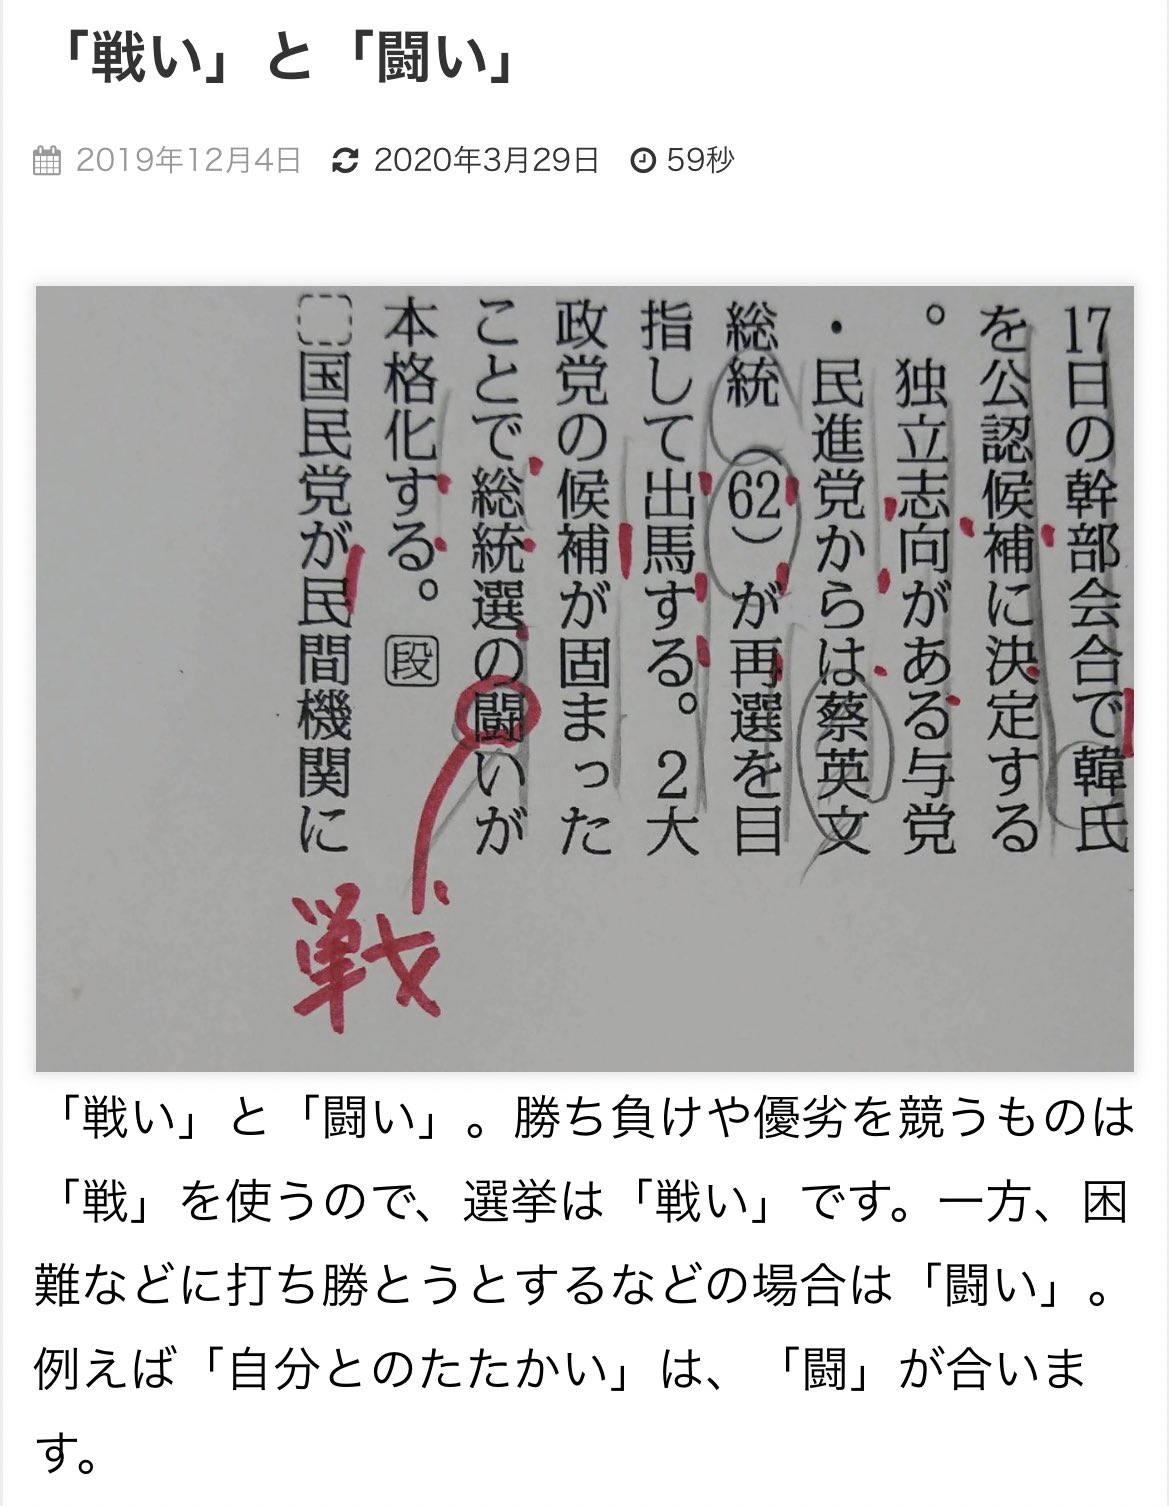 「戦い」と「闘い」
2019年12月4日 2020年3月29日 59秒
17日の幹部会合で韓氏
を公認候補に決定する
。独立志向がある与党
・民進党からは蔡英文
総統（62）が再選を目
指して出馬する。2大
政党の候補が固まった
ことで総統選の闘いが
本格化する。段
国民党が民間機関に
戦
「戦い」と「闘い」。勝ち負けや優劣を競うものは
「戦」を使うので、選挙は「戦い」です。一方、困
難などに打ち勝とうとするなどの場合は「闘い」。
例えば「自分とのたたかい」は、「闘」が合いま
す。